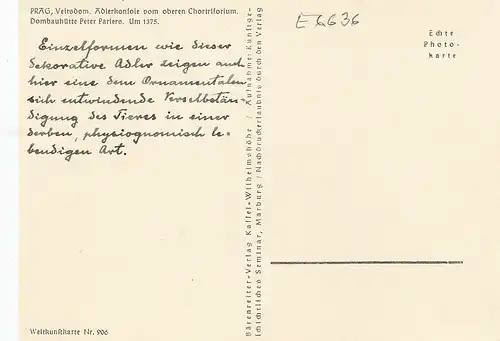 PRAG, Veitsdom. Adlerkonsole vom oberen Chortriforium.
Dombauhütte Peter Parlers. Um 1375.
Einzelformen wie dieser
dekorative Adler zeigen auch
hier eine dem Ornamentalen
sich entwindende Verselbstän-
digung des Tieres in einer
derben, physiognomisch le-
bendigen Art.
Weltkunstkarte Nr. 906
Bärenreiter-Verlag Kassel-Wilhelmshöhe / Aufnahme: Kunstge-
schichtliches Seminar, Marburg / Nachdruckerlaubnis durch den Verlag
E 6636
Echte
Photo-
karte